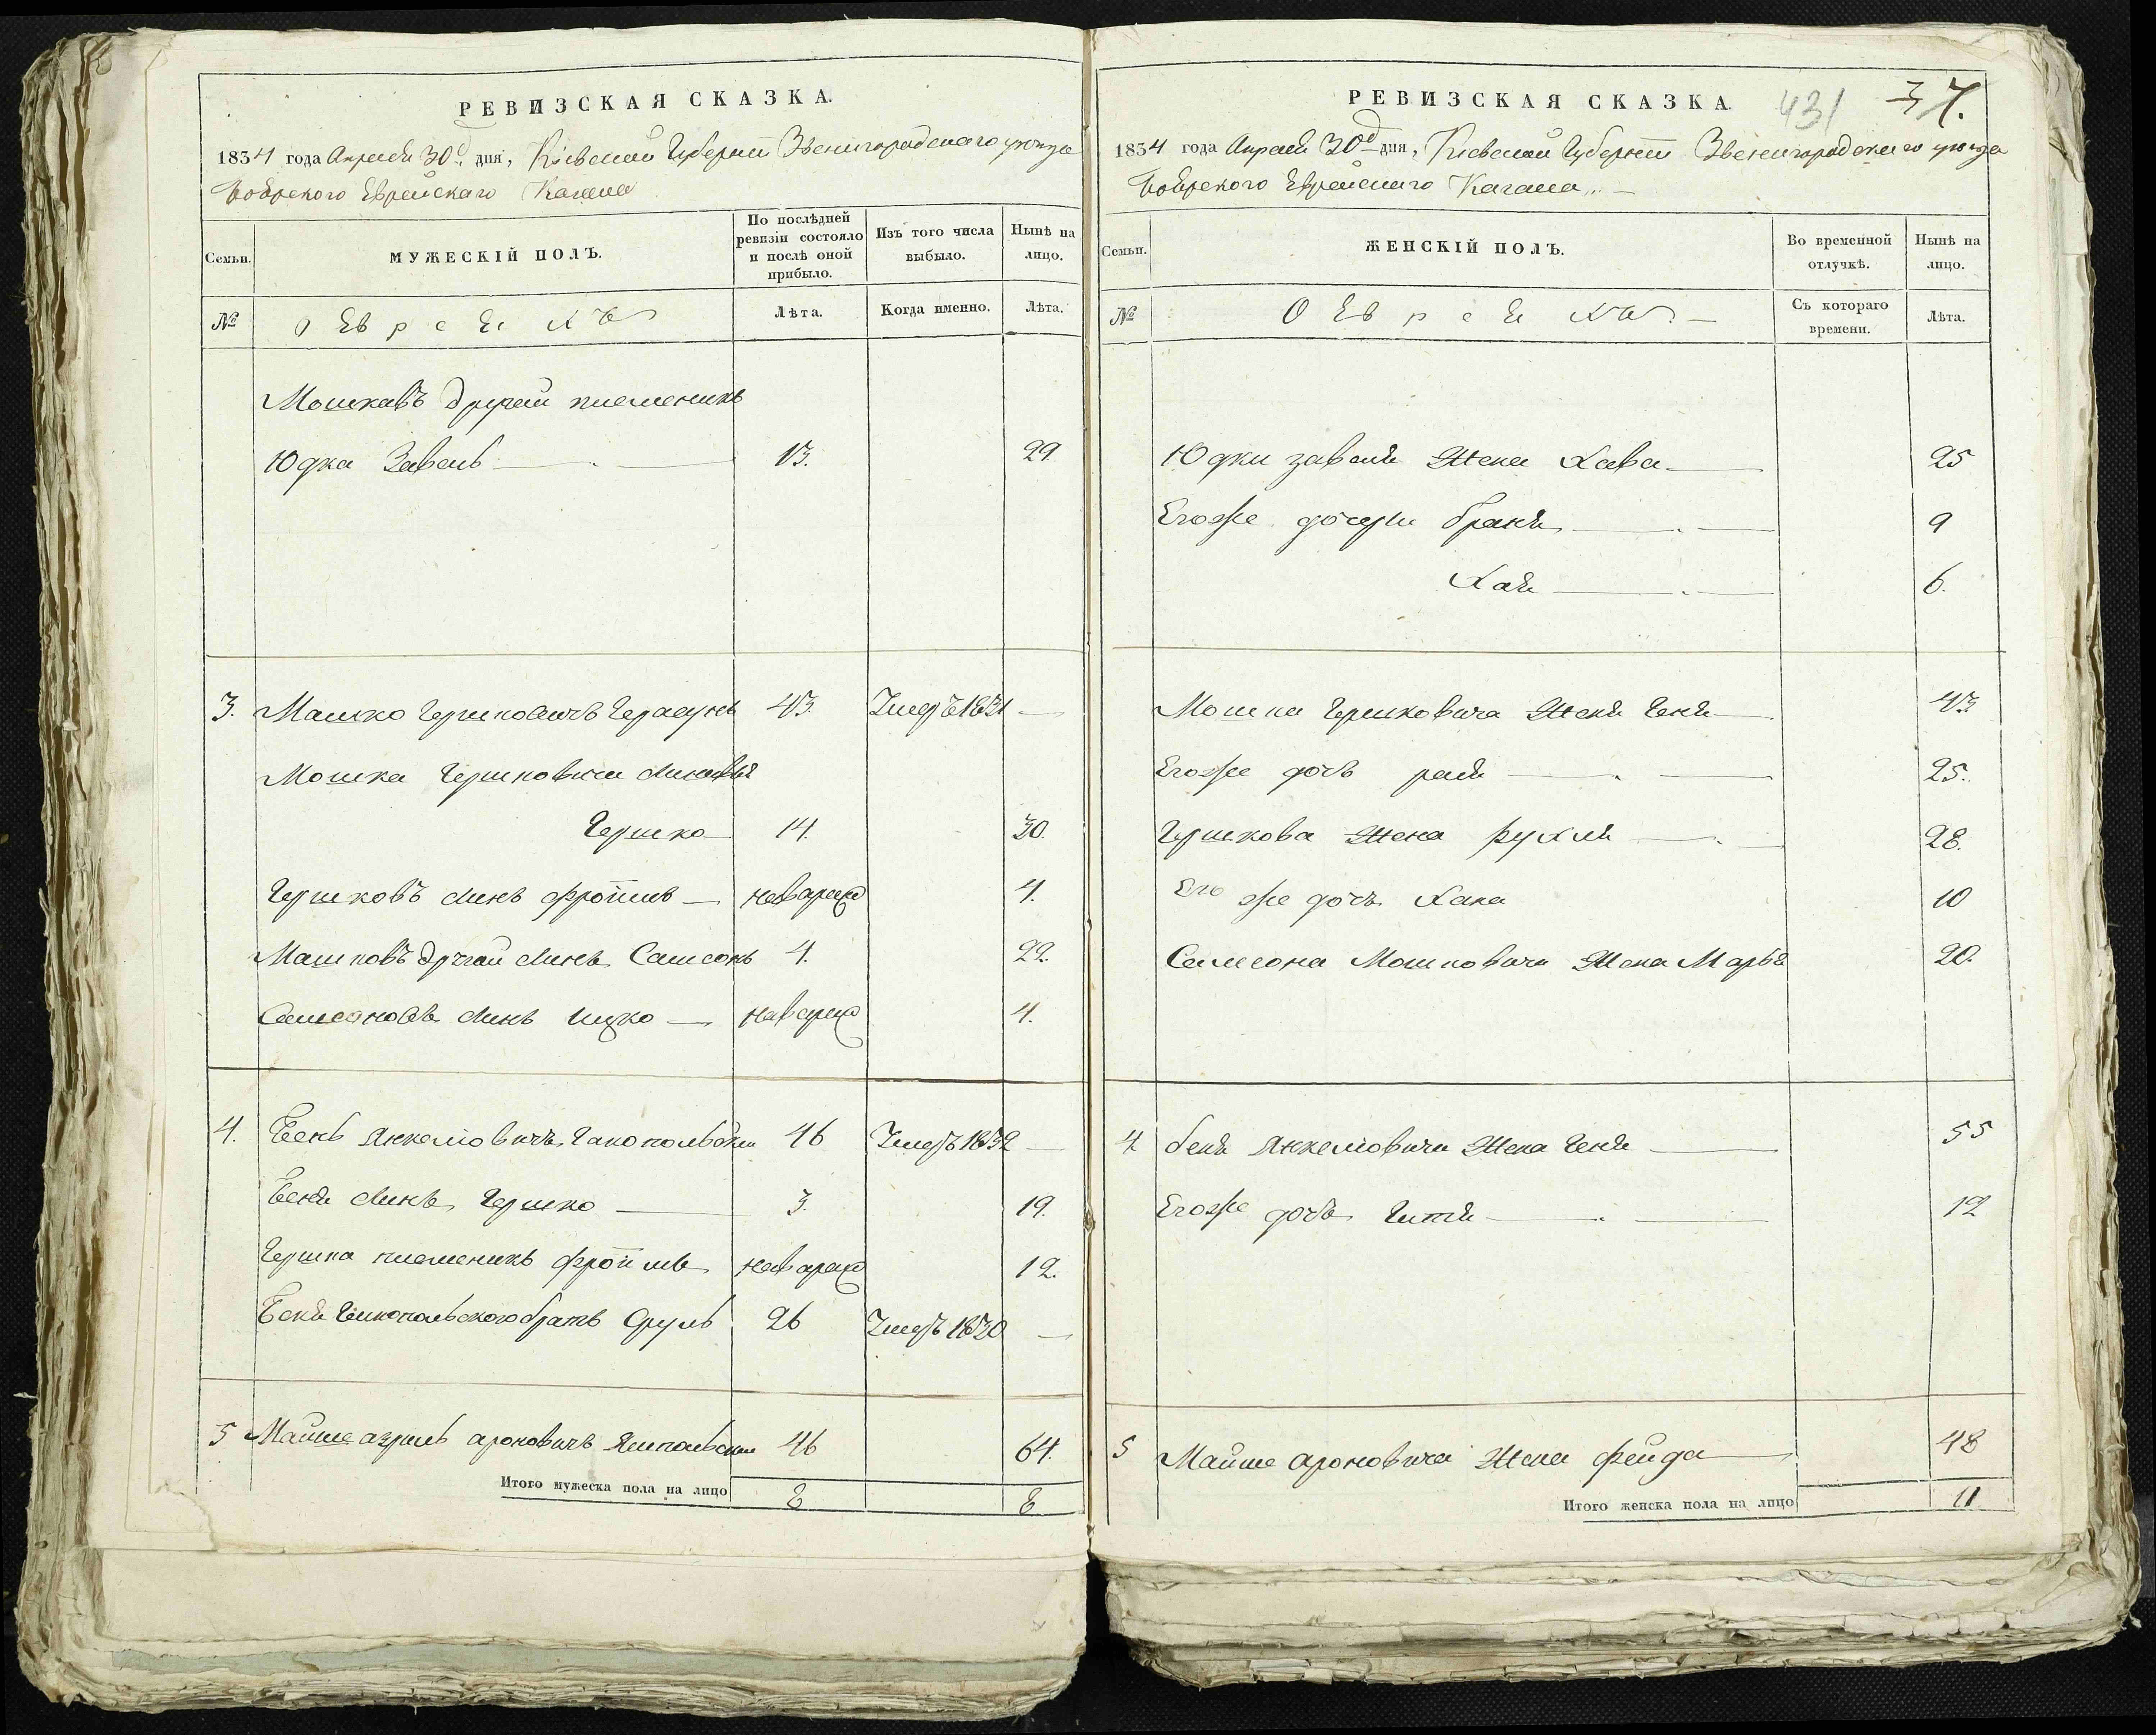 РЕВИЗСКАЯ СКАЗКА.
1834 года Апреля 30д. дня, Кіевской Губерніи Звенигородскаго уезда
Боярского Еврейскаго Кагала
Семьи.
МУЖЕСКІЙ ПОЛЪ.
По послѣдней ревизіи состояло и послѣ оной прибыло.
Изъ того числа выбыло.
Нынѣ на лицо.
№
О Евреяхъ
Лѣта.
Когда именно.
Лѣта.
Мошковъ другой племеникъ
Юдка Завель 13. 29.
3. Мошко Гершковичъ 43 Умеръ 1831 —
Мошка Гершковича сыновья
Гершко 14. 30.
Гершковъ сынъ Фроимъ — новорож 4.
Мошковъ другой сынъ Самсонъ 4. 22.
Самсоновъ сынъ Ицко — новорож 4.
4. Бенъ Янкелiовичъ 46 Умеръ 1832 —
Беня сынъ Гершко 3. 19.
Гершка племеникъ Фроимъ новорож 12.
Беня братъ Сруль 26 Умеръ 1830 —
5 Майше Азриль Ароновичъ Ямпольскій 46 64.
Итого мужеска пола на лицо 8 8
РЕВИЗСКАЯ СКАЗКА.
431 37.
1834 года Апреля 30д дня, Кіевской Губерніи Звенигородскаго уезда
Боярского Еврейскаго Кагала
Семьи.
ЖЕНСКІЙ ПОЛЪ.
Во временной отлучкѣ.
Нынѣ на лицо.
№
О Евреяхъ.
Съ котораго времени.
Лѣта.
Юдки Завеля Жена Хава 25
Егоже дочери Браня 9
Хая 6.
Мошка Гершковича Жена Геня 43
Егоже дочь Рая 25.
Гершкова Жена Рухля 28.
Его же дочь Хана 10
Самсона Мошковича Жена Марья 20.
4 Беня Янкелiовича Жена Геня 55
Егоже дочь Гитя 12
5 Майше Ароновича Жена Фейда 48
Итого женска пола на лицо 11